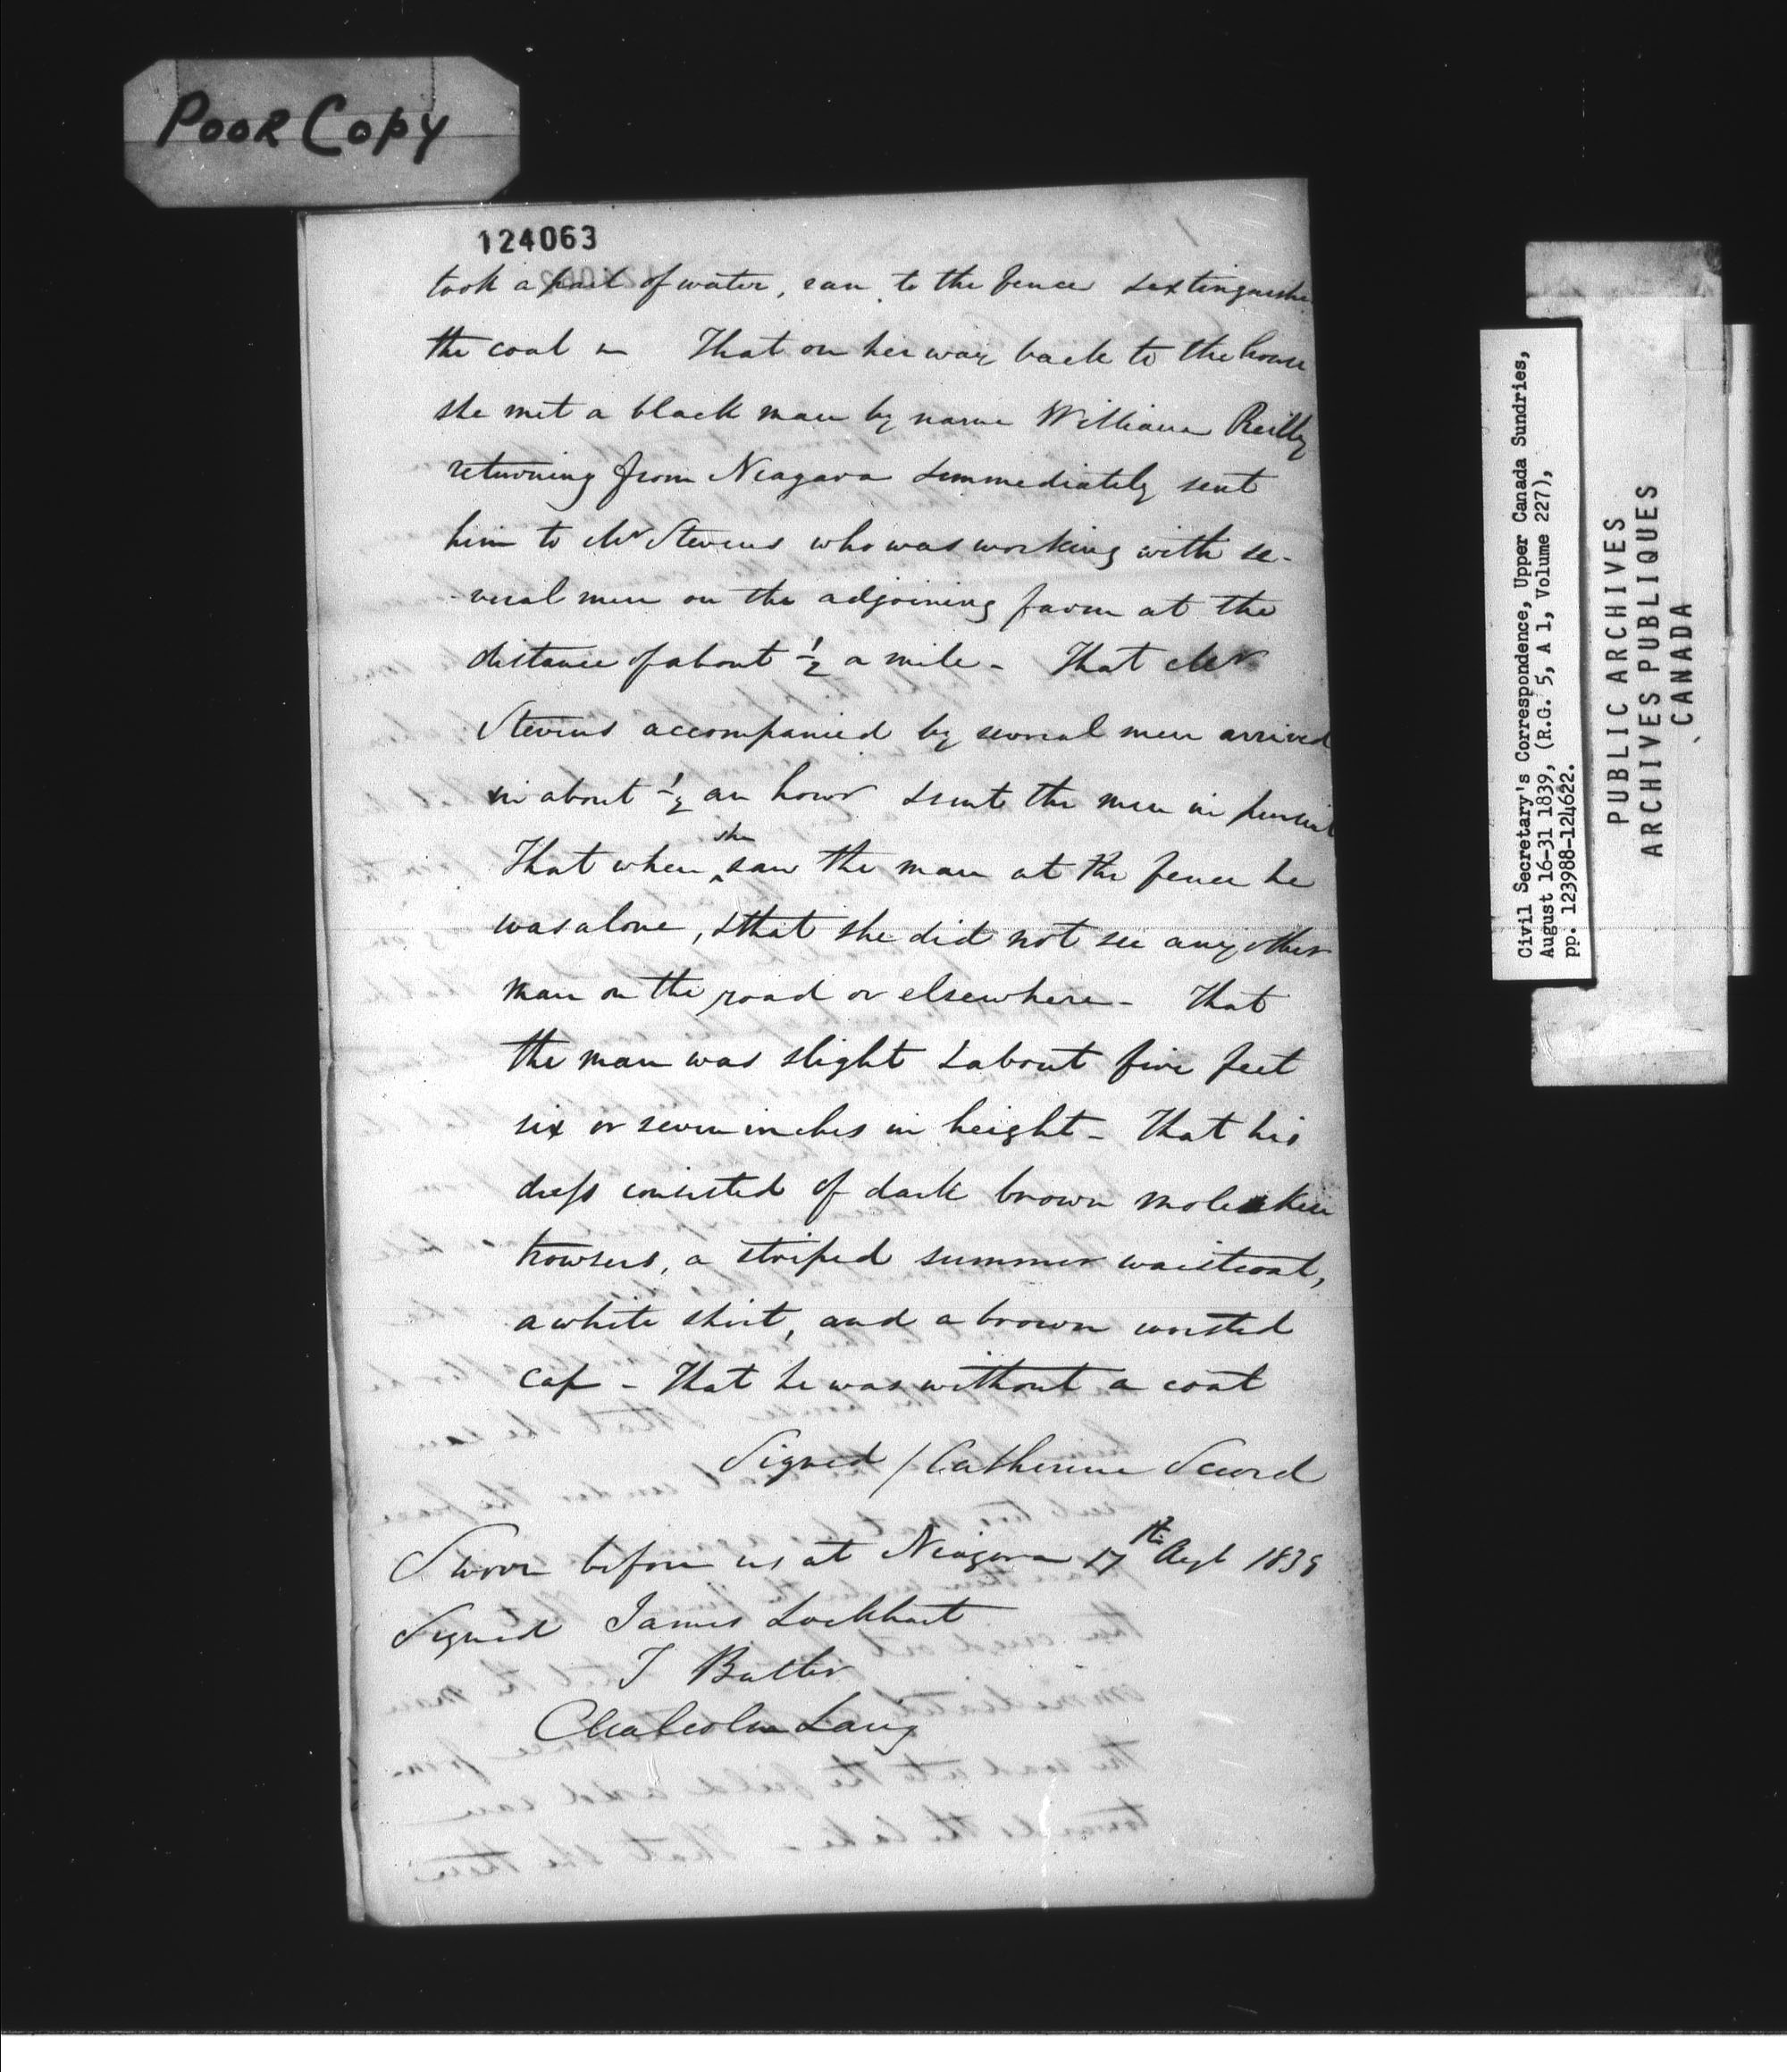 Poor Copy
124063
took a pail of water, ran to the fence & extinguishe
the coal — That on her way back to the house
she met a black man by name William Reilly
returning from Niagara & immediately sent
him to Mr Stevens who was working with se-
-veral men on the adjoining farm at the
distance of about ½ a mile - That Mr
Stevens accompanied by several men arrived
in about ½ an hour & sent the men in pursuit
That when she saw the man at the fence he
was alone, & that she did not see any other
man on the road or elsewhere - That
the man was slight & about five feet
six or seven inches in height - That his
dress consisted of dark brown moleskin
trowsers, a striped summer waistcoat,
a white shirt, and a brown worsted
cap - That he was without a coat
Signed / Catherine Secord
Sworn before us at Niagara 17th Augt 1839
Signed James Lockhart
T Butler
Malcolm Laing
Civil Secretary's Correspondence, Upper Canada Sundries,
August 16-31 1839, (R.G. 5, A 1, Volume 227),
pp. 123988-124622.
PUBLIC ARCHIVES
ARCHIVES PUBLIQUES
CANADA